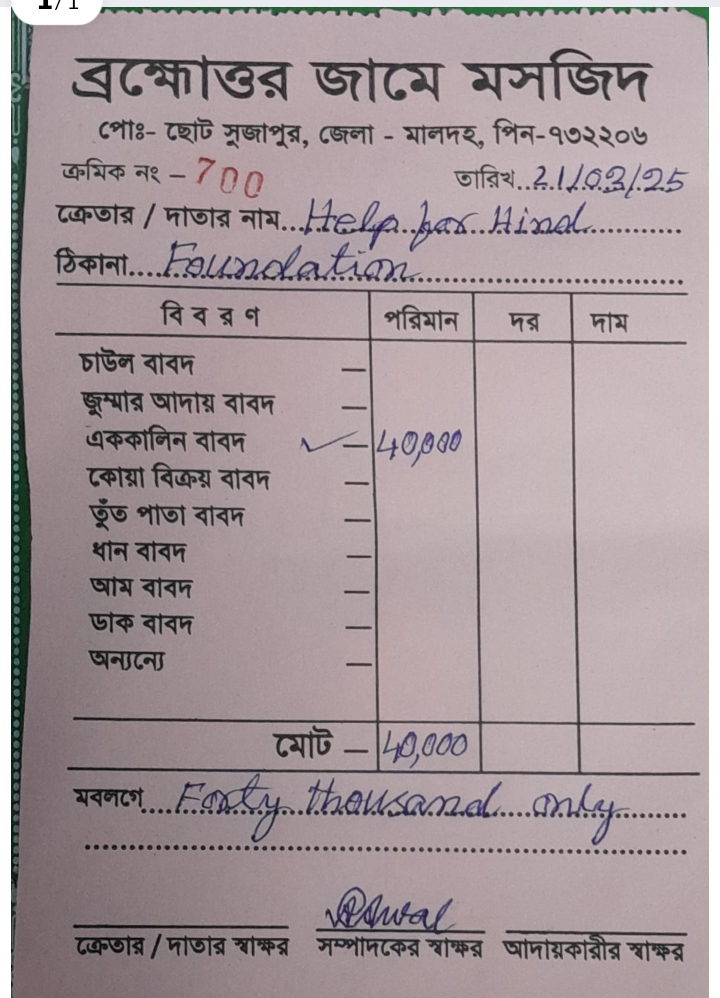 1/1
ব্রহ্মোত্তর জামে মসজিদ
পোঃ- ছোট সুজাপুর, জেলা - মালদহ, পিন-৭৩২২০৬
ক্রমিক নং - 700 তারিখ..21/03/25
ক্রেতার / দাতার নাম...Help for Hind
ঠিকানা....Foundation
বিবরণ পরিমান দর দাম
চাউল বাবদ —
জুম্মার আদায় বাবদ —
এককালিন বাবদ ✓ — 40,000
কোয়া বিক্রয় বাবদ —
তুঁত পাতা বাবদ —
ধান বাবদ —
আম বাবদ —
ডাক বাবদ —
অন্যান্যে —
মোট — 40,000
মবলগে....Forty thousand only
ক্রেতার / দাতার স্বাক্ষর সম্পাদকের স্বাক্ষর আদায়কারীর স্বাক্ষর